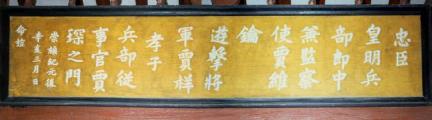 忠臣
皇明兵
部郎中
兼監察
使賈維
鑰
遊擊將
軍賈祥
孝子
兵部從
事官賈
琛之門
崇禎紀元後
辛亥三月日
命旌